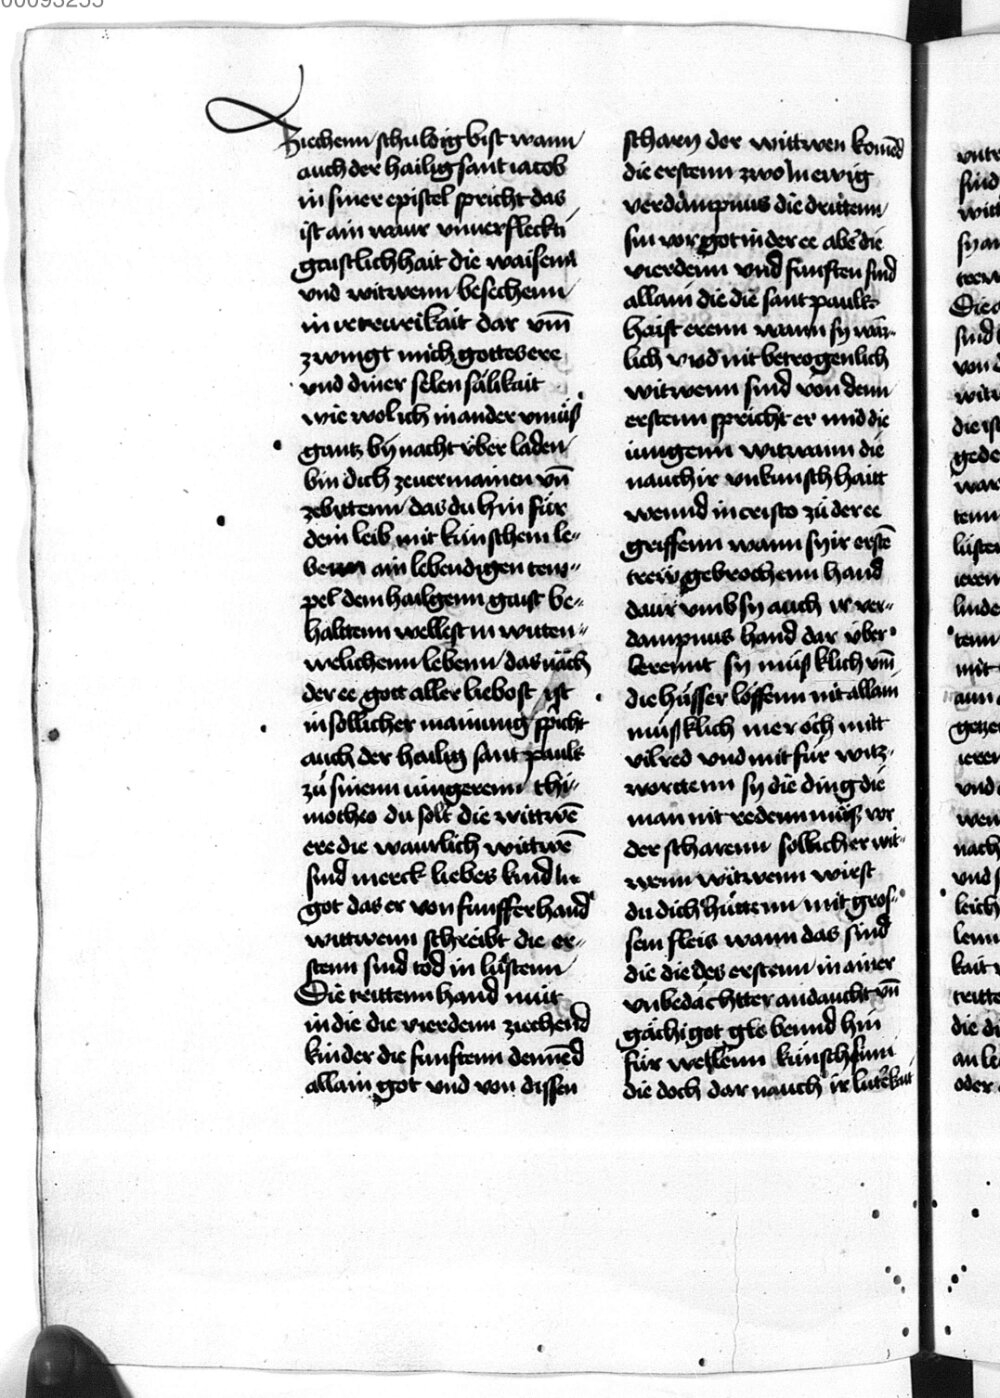 00093255
ziechenn schuldig bist wann
auch der hailig sant iacob
in siner epistel spricht das
ist ain waur vnuerfleckti
gaistlichhait die waisenn
vnd witwenn besechenn
in vetrurikait dar vm̄
zwingt mich gottes ere
vnd diner selen sälikait
wie wol ich in ander vmüß
gantz bÿ nacht über laden
bin dich ze uermainen vn̄
ze bittenn das du hin für
dein leib mit künschem le-
benn ain lebendigen tem-
pel dem hailgenn gaist be-
halttenn wellest in witten-
welichenn lebenn das nach
der ee gott aller liebost ist
in söllicher mainung spricht
auch der heilig sant pauls
zu sinenn iüngerenn thi-
motheo du solt die wittwē
ere die waurlich wittwē
sind merck liebes kind in
got das er von funffer hand
wittwenn schreibt die er-
stenn sind tod in lüstenn
Die trittenn hand nuit
in die die vierdenn ziechend
kinder die funftenn dennēd
allain got vnd von dissen
scharn der wittwen komēd
die erstenn zwo in ewig
verdampnus die drittenn
sin vor got in der ee abe die
vierdenn vnd funften sind
allain die die sant pauls
haist erenn wann sy wär-
lich vnd nit betrogenlich
witwenn sind von denn
erstenn spricht er mid die
iungenn witwann die
nauch ir vnkünschhaitt
wennd in cristo zu der ee
griffenn wann sy ir erstē
trew gebrochenn hand
daur vmb sy auch ir ver-
dampnus hand dar über
lerennt sy müsklich vm̄
die hüsser löffenn nit allain
müsklich mer och mitt
vil red vnd mit für witz-
worttenn sy die ding die
man nit redenn müss vor
der scharenn sollicher wit-
wenn witwenn wirst
du dich hüttenn mit gros-
sem fleis wann das sind
die die des erstenn in ainer
vnbedächtter andaucht vn̄
gächi got globennd hin
für wellenn künsch sinn
die doch dar nauch ir